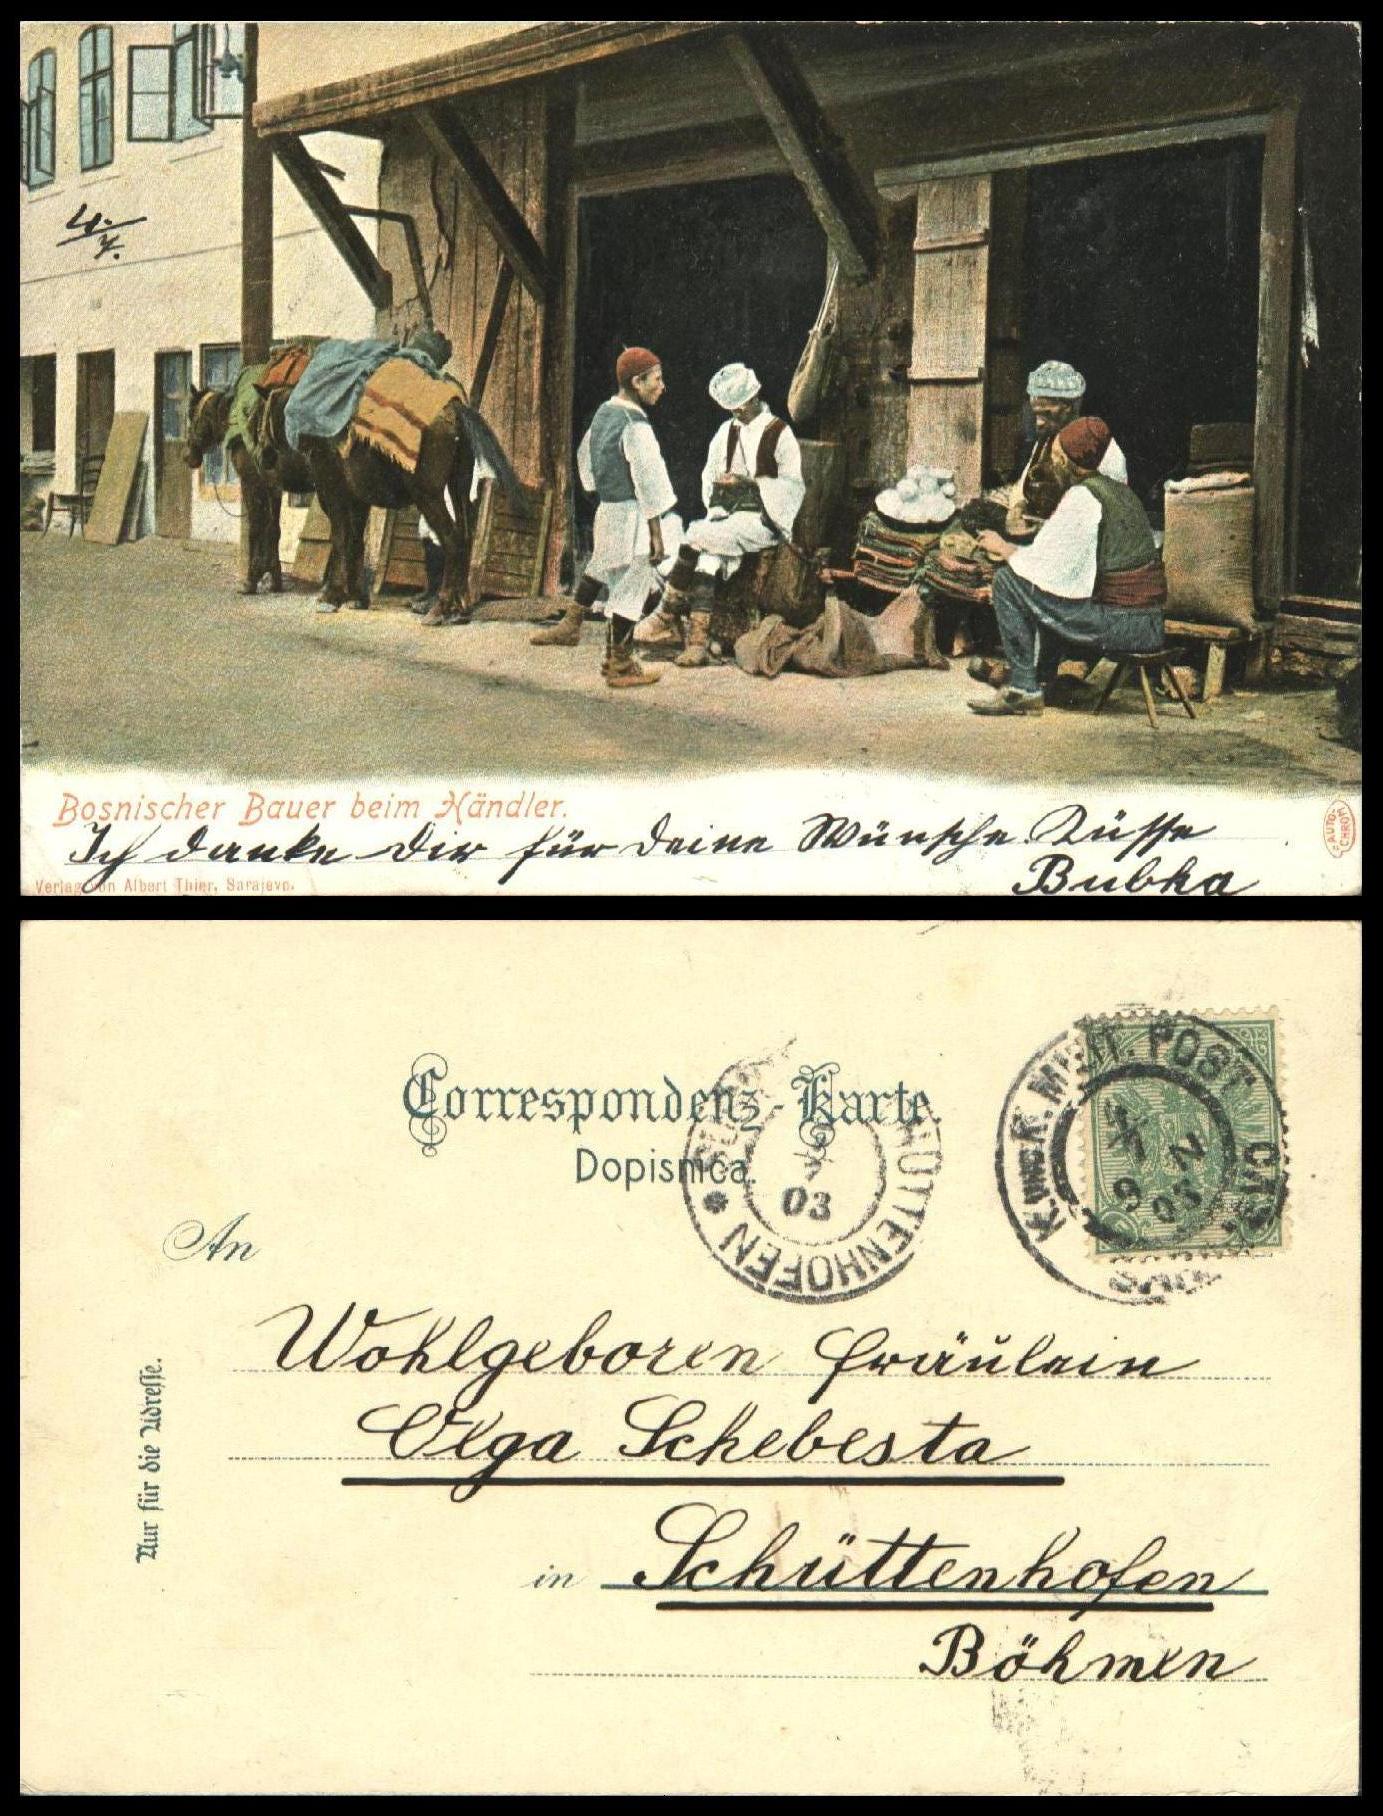 4./7.
Bosnischer Bauer beim Händler.
AUTO-
CHROM
Ich danke Dir für deine Wünsche. Küsse
Bubka
Verlag von Albert Thier, Sarajevo.
Correspondenz-Karte.
Dopisnica.
K. UND K. MILIT. POST
03
HÜTTENHOFEN
03
An
Wohlgeboren Fräulein
Olga Schebesta
in Schüttenhofen
Böhmen
Nur für die Adresse.